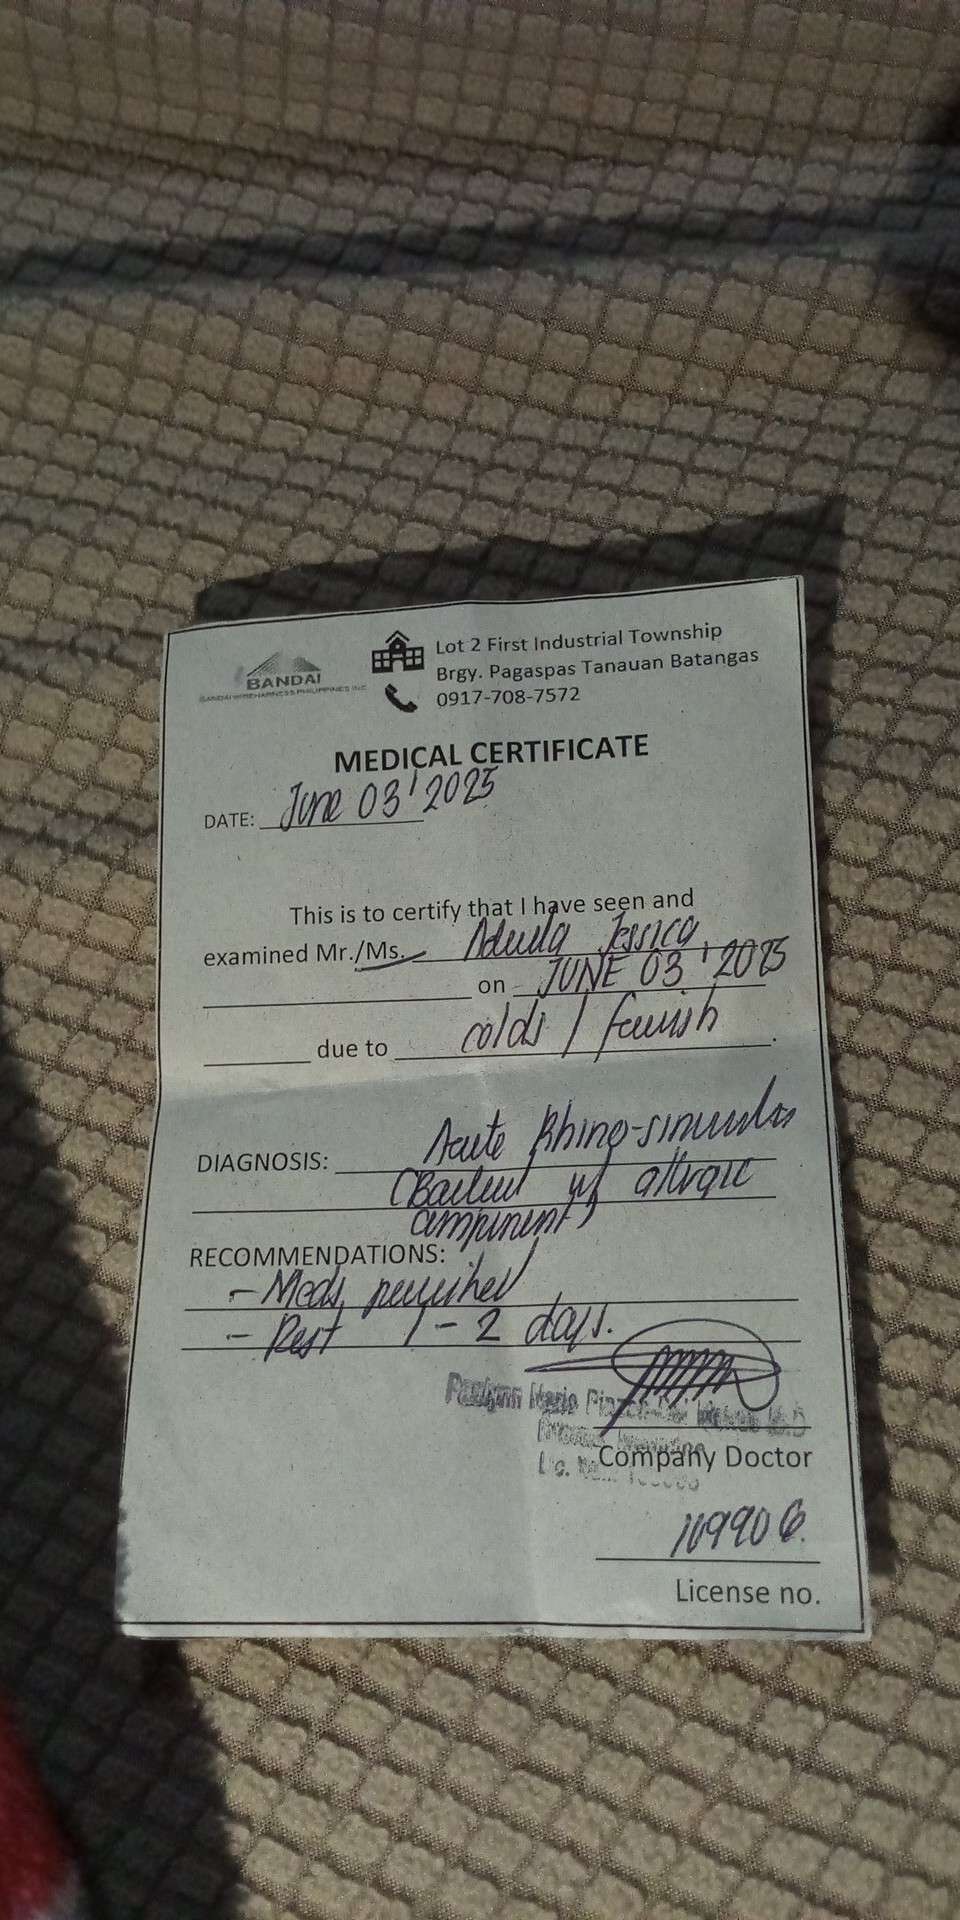 BANDAI
BANDAI WIREHARNESS PHILIPPINES INC
Lot 2 First Industrial Township
Brgy. Pagaspas Tanauan Batangas
0917-708-7572
MEDICAL CERTIFICATE
DATE: June 03' 2025
This is to certify that I have seen and
examined Mr./Ms. Jessica
on JUNE 03 ' 2025
due to colds / feverish
DIAGNOSIS: Acute Rhino-sinusitis
w/ allergic
component)
RECOMMENDATIONS:
- Meds
- Rest 1-2 days.
Company Doctor
License no.